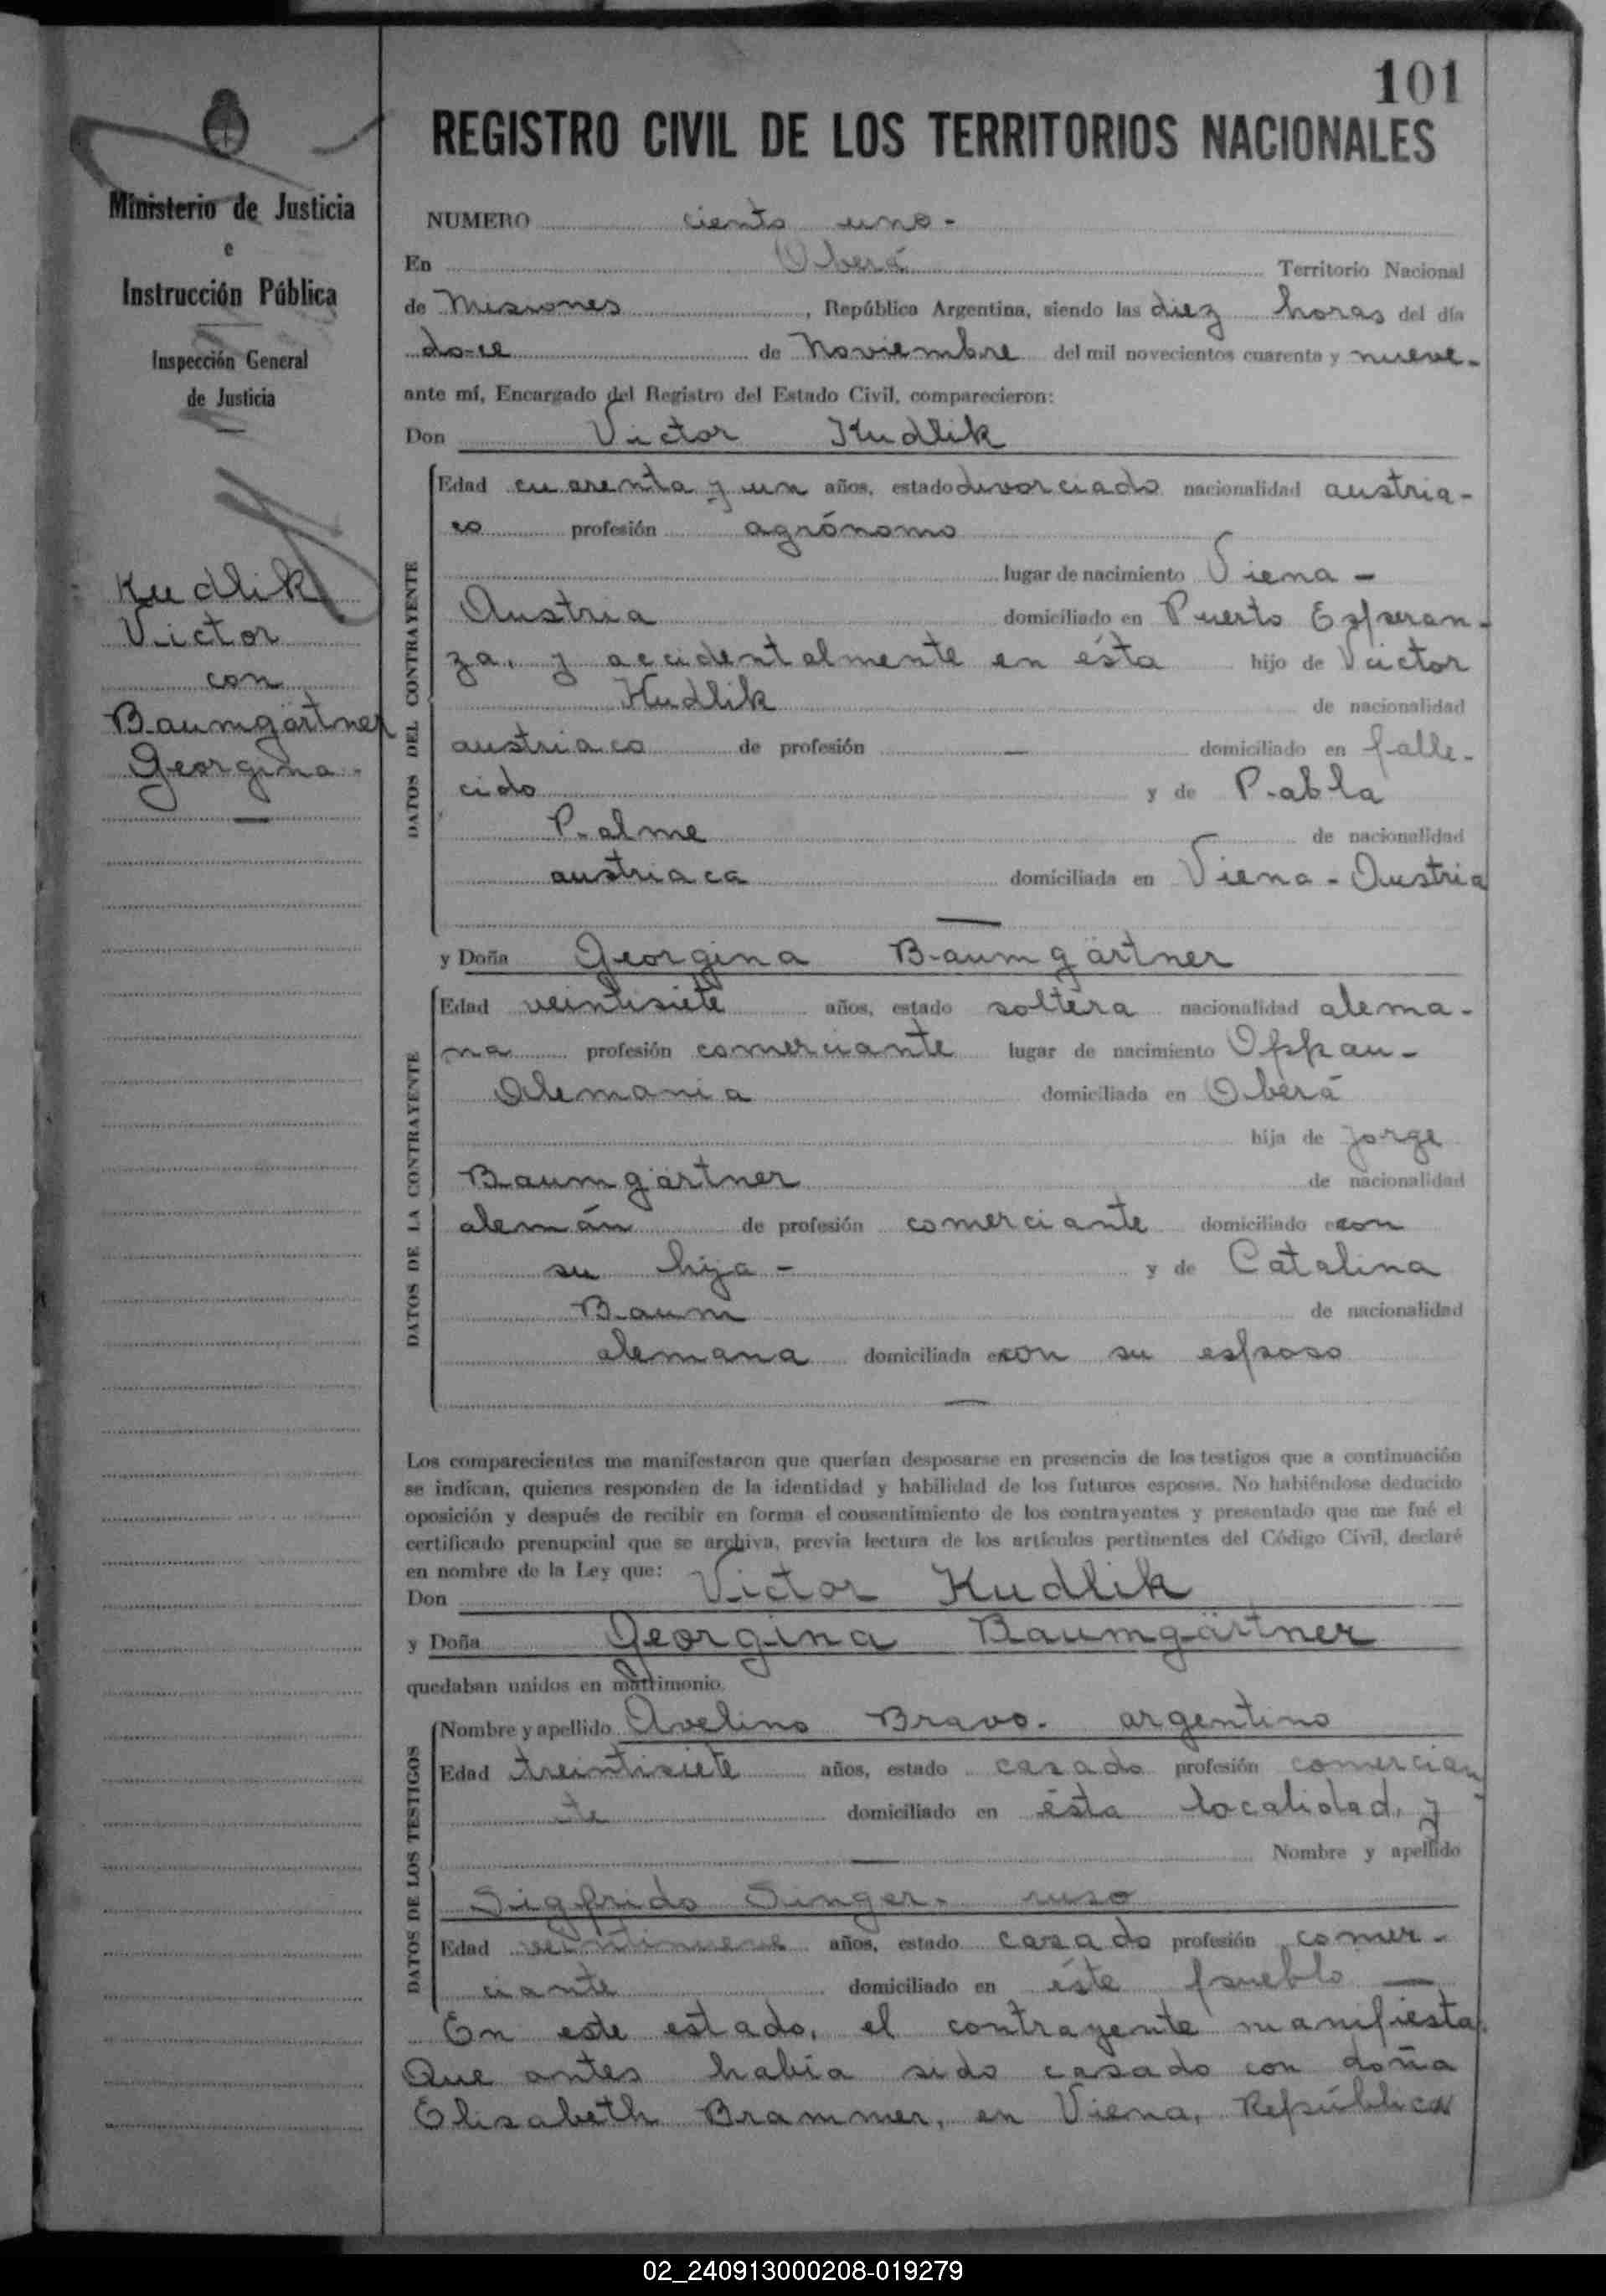 101
REGISTRO CIVIL DE LOS TERRITORIOS NACIONALES
Ministerio de Justicia
e
Instrucción Pública
Inspección General
de Justicia
Kudlik
Victor
con
Baumgärtner
Georgina.
NUMERO ciento uno-
En Oberá Territorio Nacional
de Misiones, República Argentina, siendo las diez horas del día
doce de Noviembre del mil novecientos cuarenta y nueve-
ante mí, Encargado del Registro del Estado Civil, comparecieron:
Don Victor Kudlik
DATOS DEL CONTRAYENTE
Edad cuarenta y un años, estado divorciado nacionalidad austria-
co profesión agrónomo
lugar de nacimiento Viena -
Austria domiciliado en Puerto Esperan-
za, y accidentalmente en ésta hijo de Victor
Kudlik de nacionalidad
austriaco de profesión — domiciliado en falle-
cido y de Pabla
Palme de nacionalidad
austriaca domiciliada en Viena - Austria
y Doña Georgina Baumgärtner
DATOS DE LA CONTRAYENTE
Edad veintisiete años, estado soltera nacionalidad alema-
na profesión comerciante lugar de nacimiento Oppau-
Alemania domiciliada en Oberá
hija de Jorge
Baumgärtner de nacionalidad
alemán de profesión comerciante domiciliado con
su hija - y de Catalina
Baum de nacionalidad
alemana domiciliada con su esposo
Los comparecientes me manifestaron que querían desposarse en presencia de los testigos que a continuación
se indican, quienes responden de la identidad y habilidad de los futuros esposos. No habiéndose deducido
oposición y después de recibir en forma el consentimiento de los contrayentes y presentado que me fué el
certificado prenupcial que se archiva, previa lectura de los artículos pertinentes del Código Civil, declaré
en nombre de la Ley que:
Don Victor Kudlik
y Doña Georgina Baumgärtner
quedaban unidos en matrimonio.
DATOS DE LOS TESTIGOS
Nombre y apellido Avelino Bravo. argentino
Edad treintisiete años, estado casado profesión comercian
te domiciliado en ésta localidad, y
— Nombre y apellido
Sigfrido Singer. ruso
Edad veintinueve años, estado casado profesión comer-
ciante domiciliado en éste pueblo —
En este estado, el contrayente manifiesta:
Que antes había sido casado con doña
Elisabeth Brammer, en Viena, República
02_240913000208-019279